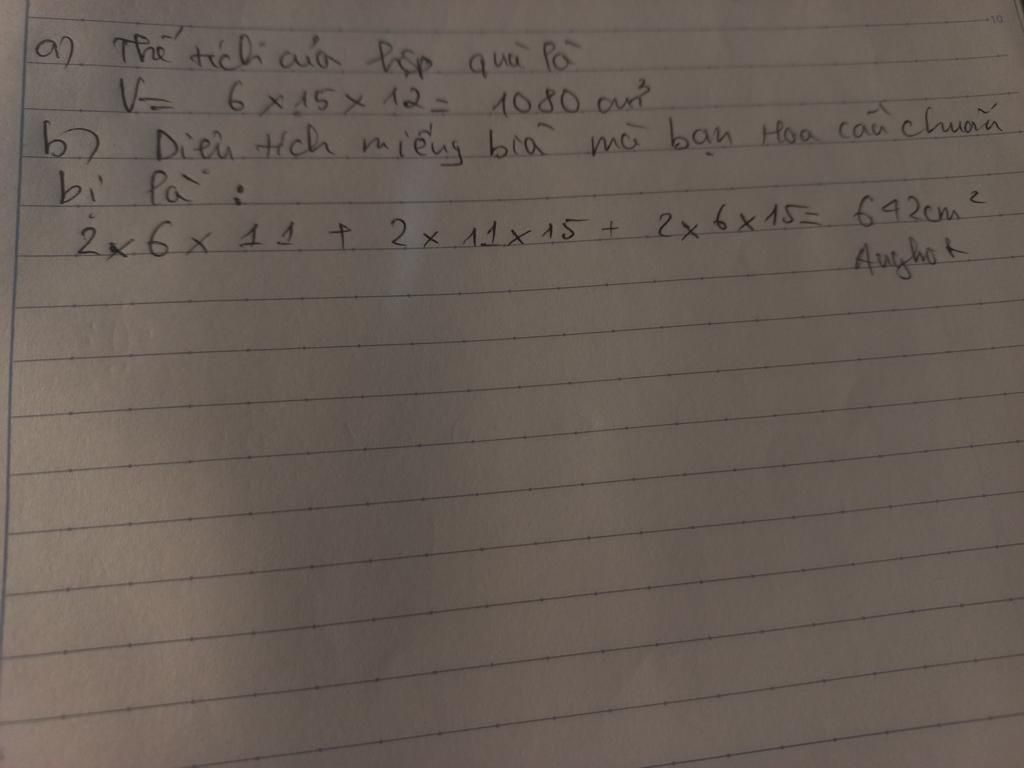 a) Thể tích của hộp quà là
V= 6 × 15 × 12 = 1080 cm³
b) Diện tích miếng bìa mà bạn Hoa cần chuẩn
bị là :
2 × 6 × 11 + 2 × 11 × 15 + 2 × 6 × 15 = 642cm²